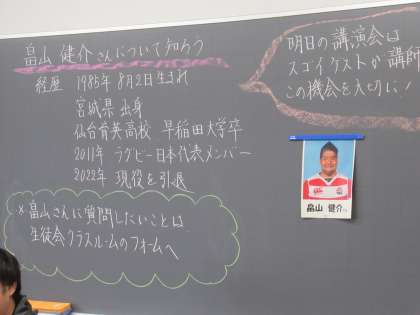 畠山 健介さんについて知ろう
経歴 1985年 8月2日生まれ
宮城県 出身
仙台育英高校 早稲田大学卒
2011年 ラグビー日本代表メンバー
2022年 現役を引退
※畠山さんに質問したいことは
生徒会クラスルームのフォームへ
明日の講演会は
スゴイゲストが講師
この機会を大切に!
畠山 健介